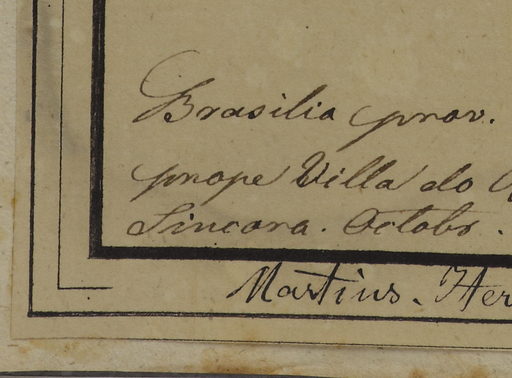 Brasilia prov.
prope Villa do
Sincora. Octobr.
Martius. Her